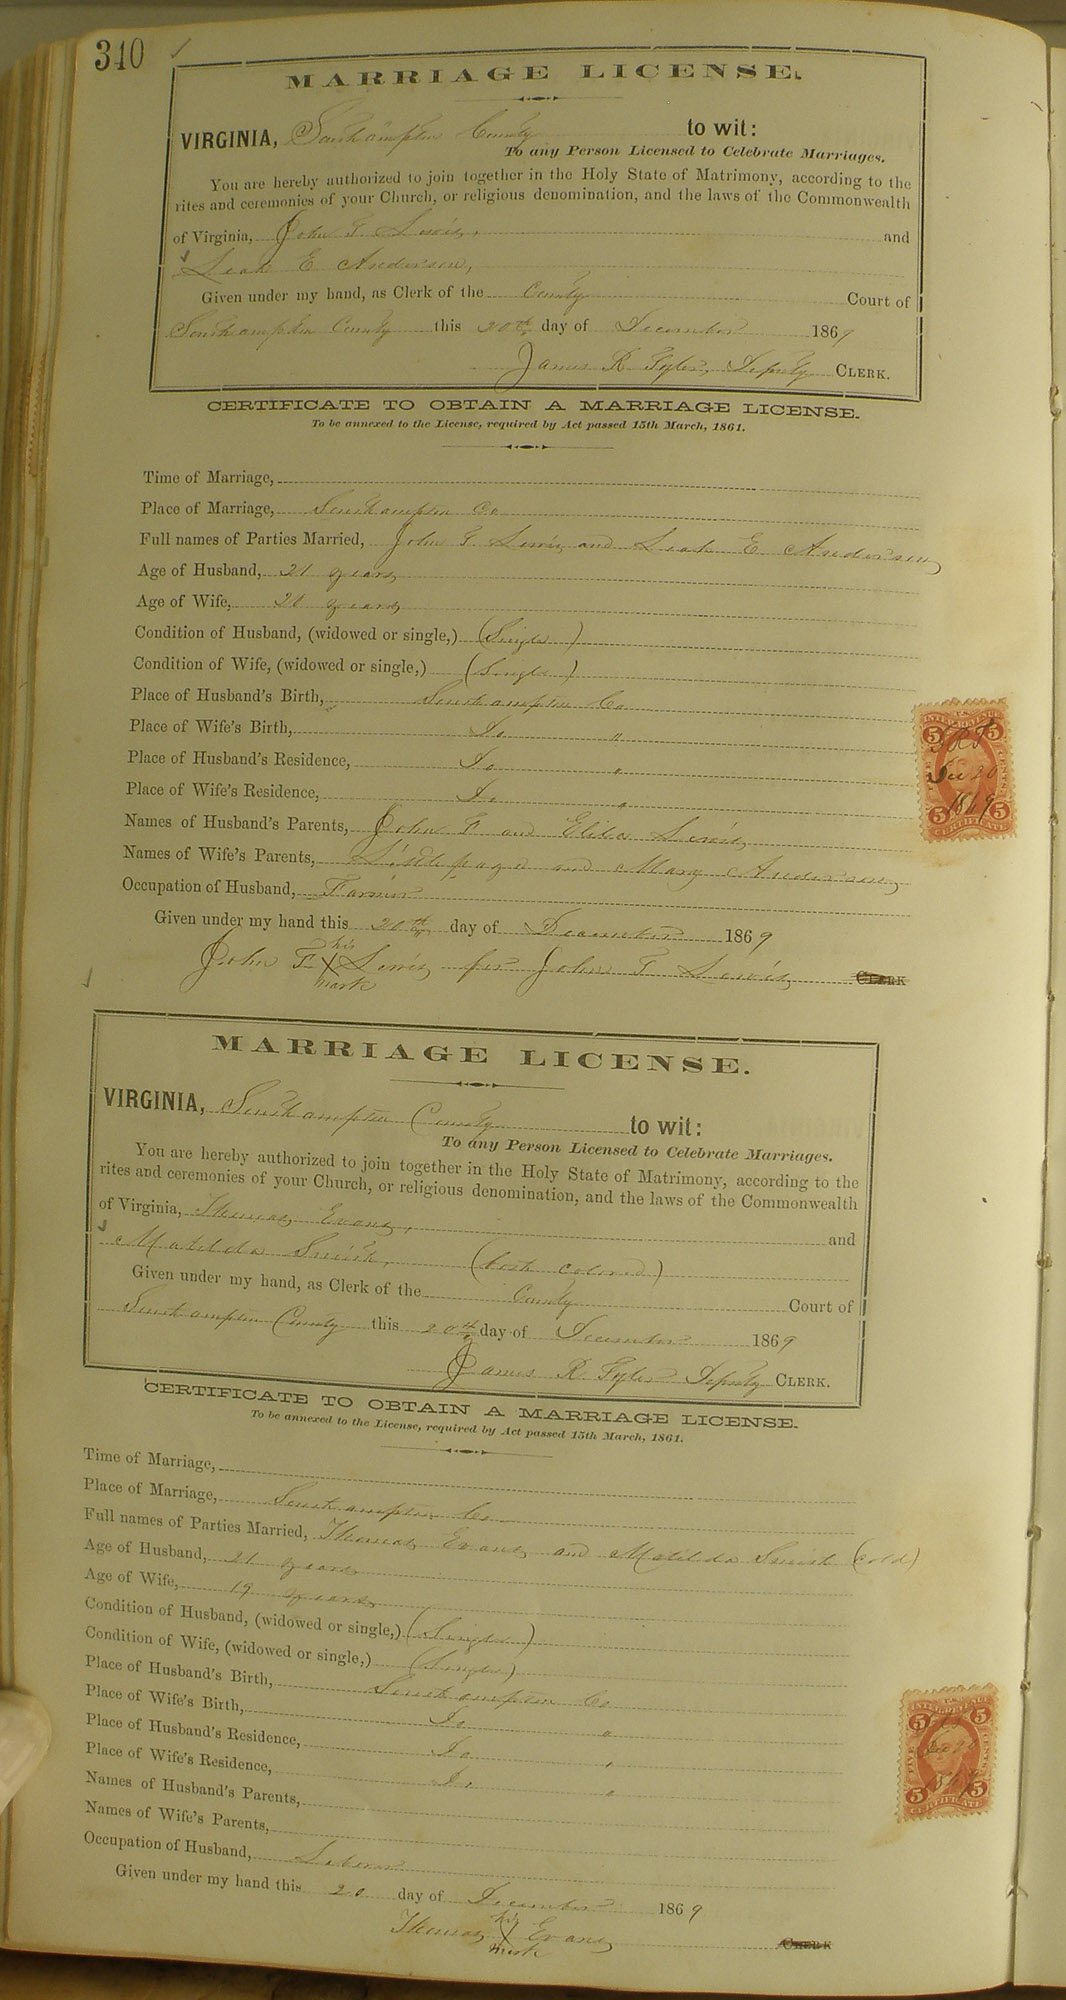 340
MARRIAGE LICENSE.
VIRGINIA, Southampton County to wit:
To any Person Licensed to Celebrate Marriages.
You are hereby authorized to join together in the Holy State of Matrimony, according to the
rites and ceremonies of your Church, or religious denomination, and the laws of the Commonwealth
of Virginia, John T. Lewis, and
Leah E Anderson,
Given under my hand, as Clerk of the County Court of
Southampton County this 20th day of December 1869
James R. Tyler, Deputy CLERK.
CERTIFICATE TO OBTAIN A MARRIAGE LICENSE.
To be annexed to the License, required by Act passed 15th March, 1861.
Time of Marriage,
Place of Marriage, Southampton Co
Full names of Parties Married, John T. Lewis and Leah E Anderson
Age of Husband, 21 years
Age of Wife, years
Condition of Husband, (widowed or single,) (Single)
Condition of Wife, (widowed or single,) (Single)
Place of Husband's Birth, Southampton Co
Place of Wife's Birth, Do "
Place of Husband's Residence, Do "
Place of Wife's Residence, Do "
Names of Husband's Parents, John F and Eliza Lewis
Names of Wife's Parents, and Mary Anderson
Occupation of Husband, Farmer
Given under my hand this 20th day of December 1869
his
John F. X Lewis for John T Lewis CLERK
mark
5 INTER. REVENUE 5
Dec 20
1869
5 CERTIFICATE 5
MARRIAGE LICENSE.
VIRGINIA, Southampton County to wit:
To any Person Licensed to Celebrate Marriages.
You are hereby authorized to join together in the Holy State of Matrimony, according to the
rites and ceremonies of your Church, or religious denomination, and the laws of the Commonwealth
of Virginia, Thomas Evans, and
Matilda Smith, (both colored)
Given under my hand, as Clerk of the County Court of
Southampton County this 20th day of December 1869
James R. Tyler Deputy CLERK.
CERTIFICATE TO OBTAIN A MARRIAGE LICENSE.
To be annexed to the License, required by Act passed 15th March, 1861.
Time of Marriage,
Place of Marriage, Southampton Co
Full names of Parties Married, Thomas Evans and Matilda Smith (cold)
Age of Husband, 21 years
Age of Wife, 19 years
Condition of Husband, (widowed or single,) (Single)
Condition of Wife, (widowed or single,) (Single)
Place of Husband's Birth, Southampton Co
Place of Wife's Birth, Do "
Place of Husband's Residence, Do "
Place of Wife's Residence, Do "
Names of Husband's Parents,
Names of Wife's Parents,
Occupation of Husband, Laborer
Given under my hand this 20 day of December 1869
his
Thomas X Evans CLERK
mark
5 INTER. REVENUE 5
Dec 20
1869
5 CERTIFICATE 5